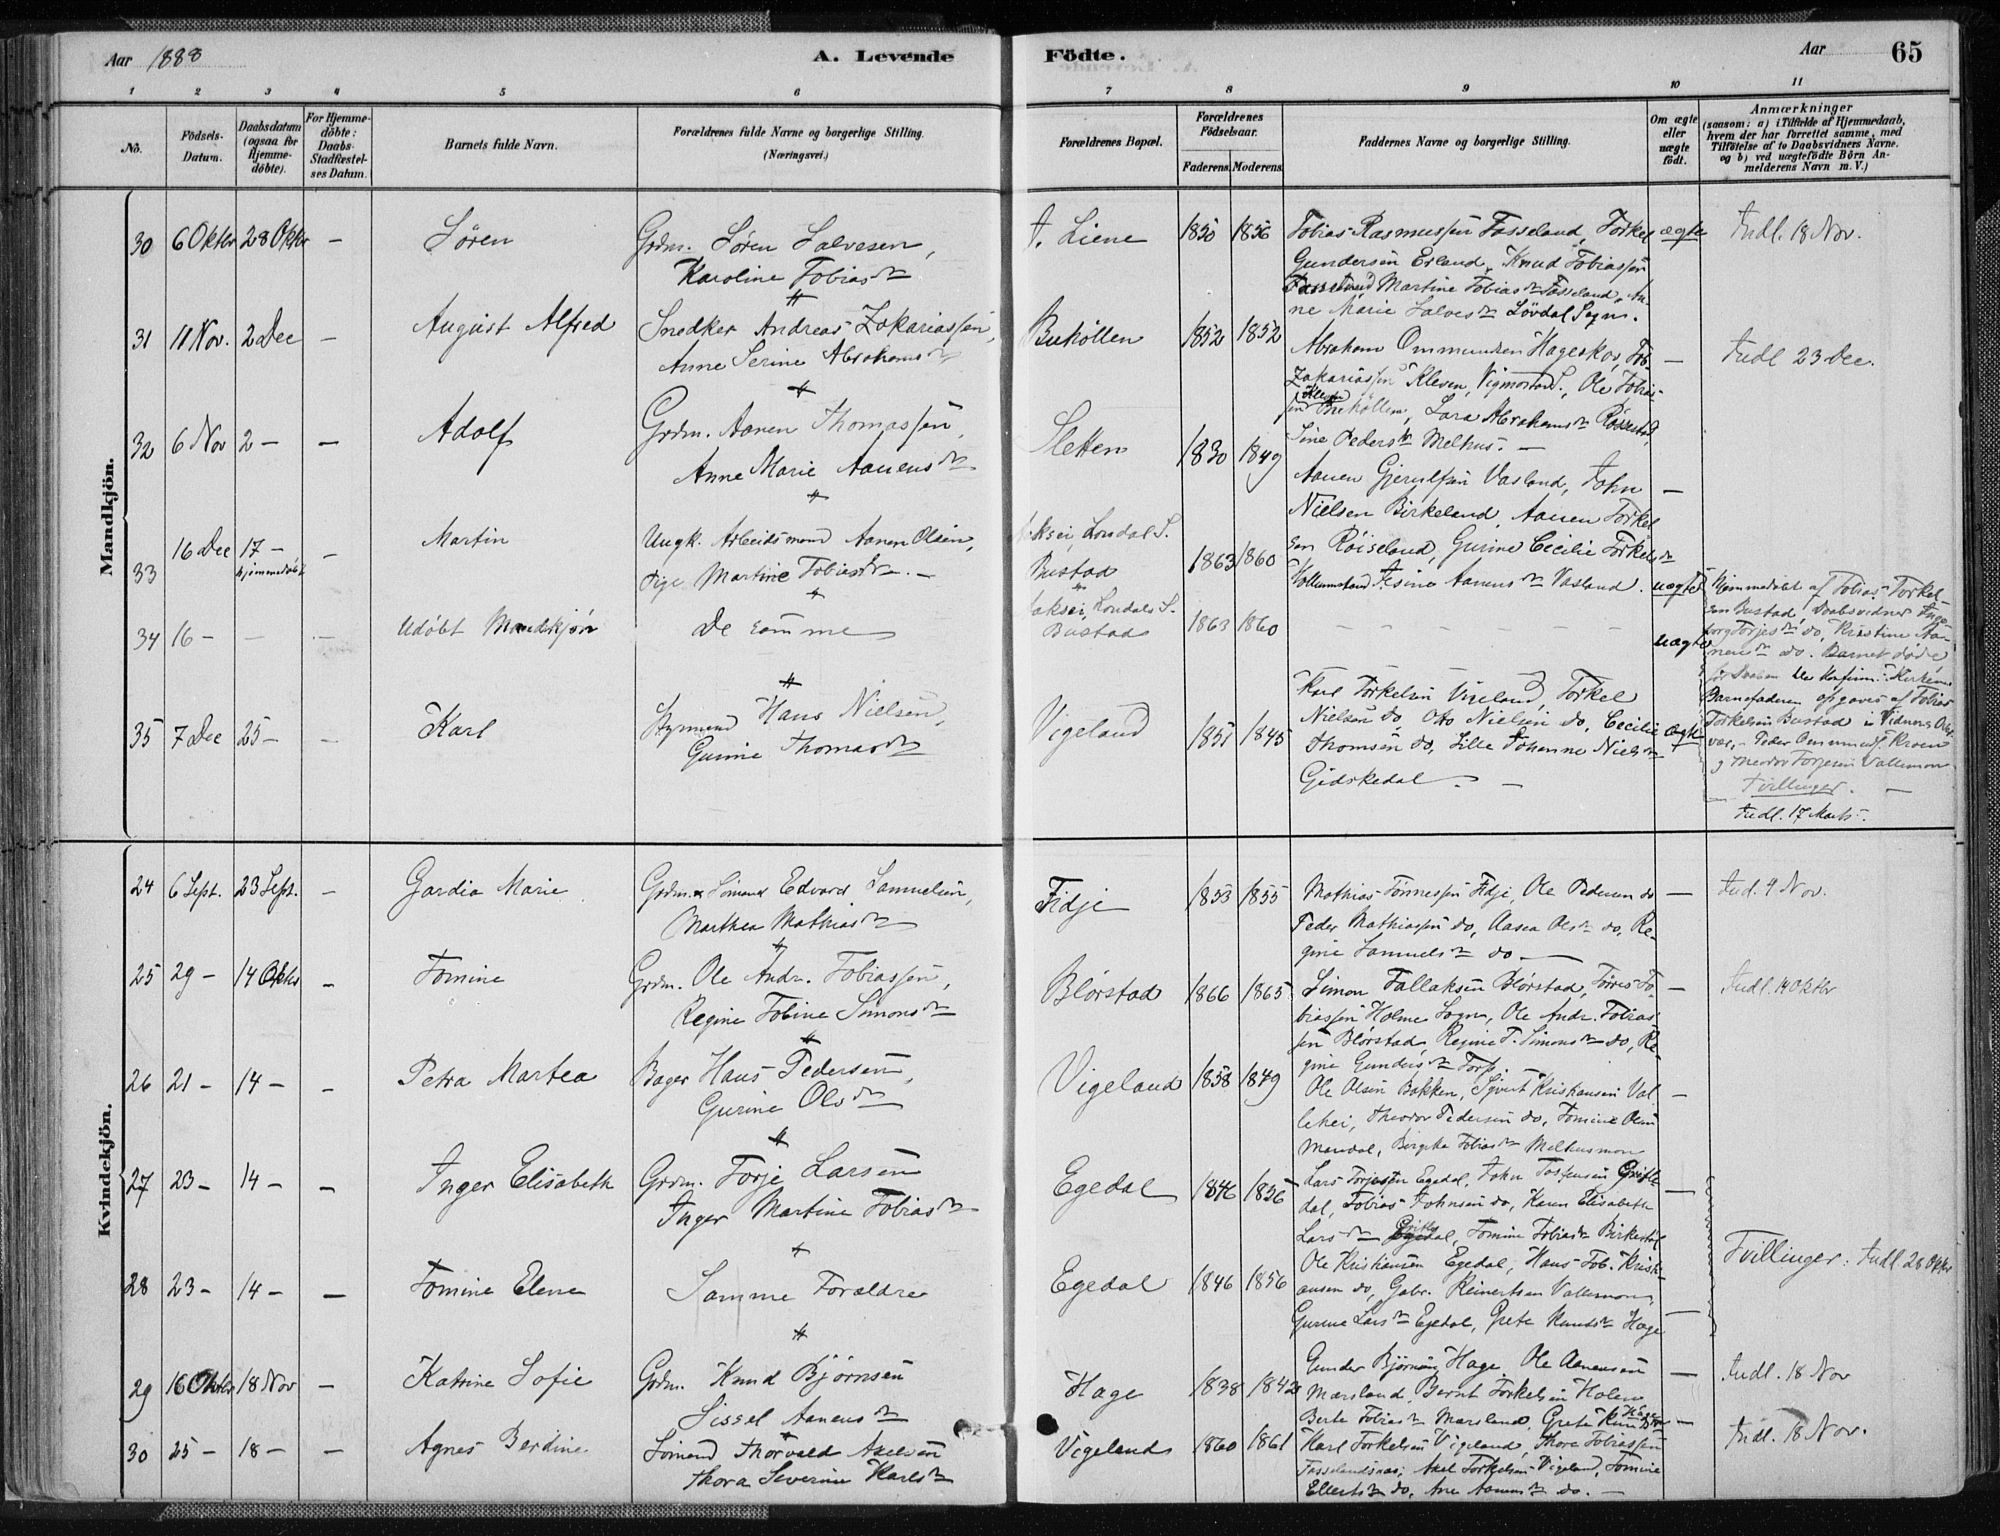 Aar 1888
A. Levende Födte.
Aar
65
1 2 3 4 5 6 7 8 9 10 11
No.
Födsels-Datum.
Daabsdatum (ogsaa for Hjemme-döbte).
For Hjemme-döbte: Daabs-Stadfæstel-ses Datum.
Barnets fulde Navn.
Forældrenes fulde Navne og borgerlige Stilling.
(Næringsvei.)
Forældrenes Bopæl.
Forældrenes Födselsaar.
Faderens. Moderens.
Faddernes Navne og borgerlige Stilling.
Om ægte eller uægte födt.
Anmærkninger
(saasom: a) i Tilfælde af Hjemmedaab, hvem der har forrettet samme, med Tilföielse af to Daabsvidners Navne. og b) ved uægtefödte Börn An-melderens Navn m. V.)
Mandkjön.
30 6 Oktbr 28 Oktbr – Søren
Grdm. Søren Salvesen,
Karoline Tobiasdr
Liene 1850 1856
Tobias Rasmussen Fosseland, Torkel
Gundersen Erland, Knud Tobiassen
Martine Tobiasdr Fosseland, An-
ne Marie Salvesdr Løvdal Sogn.
ægte
Indl. 18 Nov.
31 11 Nov. 2 Dec – August Alfred
Snedker Andreas Zakariassen,
Anne Serine Abrahamsdr
1852 1852
Abraham Ommundsen Hageskov, Tob.
Zakariassen Kleven, Vigmostad S., Ole Tobias-
sen Lara Abrahamsdr
Sine Pedersdr Melhus. –
–
Indl 23 Dec.
32 6 Nov 2 – – Adolf
Grdm. Aanen Thomassen,
Anne Marie Aanensdr
Sletten 1830 1849
Aanen Gjerulfsen Vasland, John
Nielsen Birkeland, Aanen Torkel
sen Röiseland, Gurine Cecilie Torkelsdr
Aanensdr Vasland.
–
33 16 Dec 17 – hjemmedöbt – Martin
Ungk. Arbeidsmand Aanen Olsen,
Pige Martine Tobiasdr. –
Bustad 1863 1860
uægte
Hjemmedöbt af Tobias Torkel-
sen Bustad, Daabsvidner Inge-
borg Torjesdr do, Kristine Aa-
nensdr do. Barnet döde
34 16 – – – Udöbt Mandkjön
De samme
Bustad 1863 1860
uægte
Barnefaderen opgaves af Tobias
Torkelsen Bustad
Tvillinger. –
35 7 Dec 25 – Karl
Hans Nielsen,
Gurine Thomasdr
Vigeland 1851 1845
Karl Torkelsen Vigeland Torkel
Nielsen do, Otto Nielsen do, Cecilie
Thomsen do, Lille Johanne Nielsdr
Gidskedal. –
ægte
Indl. 17 Marts.
Kvindekjön.
24 6 Sept. 23 Sept. – Gardia Marie
Grdm. Sömand Edvard Samuelsen,
Marthea Mathiasdr
Fidje 1853 1855
Mathias Tönnessen Fidje, Ole Pedersen do
Peder Mathiassen do, Aasea Olsdr do, Re-
gine Samuelsdr do –
–
Ind. 4 Nov.
25 29 – 14 Oktbr – Tomine
Grdm. Ole Andr. Tobiassen,
Regine Tobine Simonsdr
Blörstad 1866 1865
Simon Tallaksen Blörstad, Törres To-
biassen Holme Sogn, Ole Andr. Tobias-
sen Blörstad, Regine T. Simonsdr do, Re-
gine Gundersdr Torp
–
Indl. 14 Oktbr
26 21 – 14 – – Petra Martea
Bager Hans Pedersen,
Gurine Olsdr
Vigeland 1858 1849
Ole Olsen Bakken, Syvert Kristiansen Val-
lehei, Theodor Pedersen do, Tomine Olsen
Mandal, Birgitte Tobiasdr Melhusmon
–
27 23 – 14 – – Inger Elisabeth
Grdm. Torje Larsen
Inger Martine Tobiasdr
Egedal 1846 1856
Lars Torjesen Egedal, John
dal, Tobias Johnsen do, Karen Elisabeth
Larsdr Tomine Tobiasdr
–
28 23 – 14 – – Tomine Elene
Samme Forældre
Egedal 1846 1856
Ole Kristiansen Egedal, Hans Tob. Kristi-
ansen do, Gabr. Reinertsen Vallemon,
Gurine Larsdr Egedal, Grete Knudsdr Hage
–
Tvillinger. Indl 28 Oktbr
29 16 Oktbr 18 Nov – Katrine Sofie
Grdm. Knud Bjørnsen
Sissel Aanensdr
Hage 1838 1842
Gunder Bjørnsen Hage, Ole Aanensen
Marsland, Bernt Torkelsen Holem
Berte Tobiasdr Marsland, Grete Knudsdr Hage
–
Indl. 18 Nov
30 25 – 18 – – Agnes Berdine
Sömand Thorvald Axelsen
Thora Severine Karlsdr
Vigeland 1860 1861
Karl Torkelsen Vigeland, Thore Tobiassen
Axel Torkelsen Vigeland, Tomine
Ellertsdr do, Ane Aanensdr do. –
–
Indl. 18 Nov.